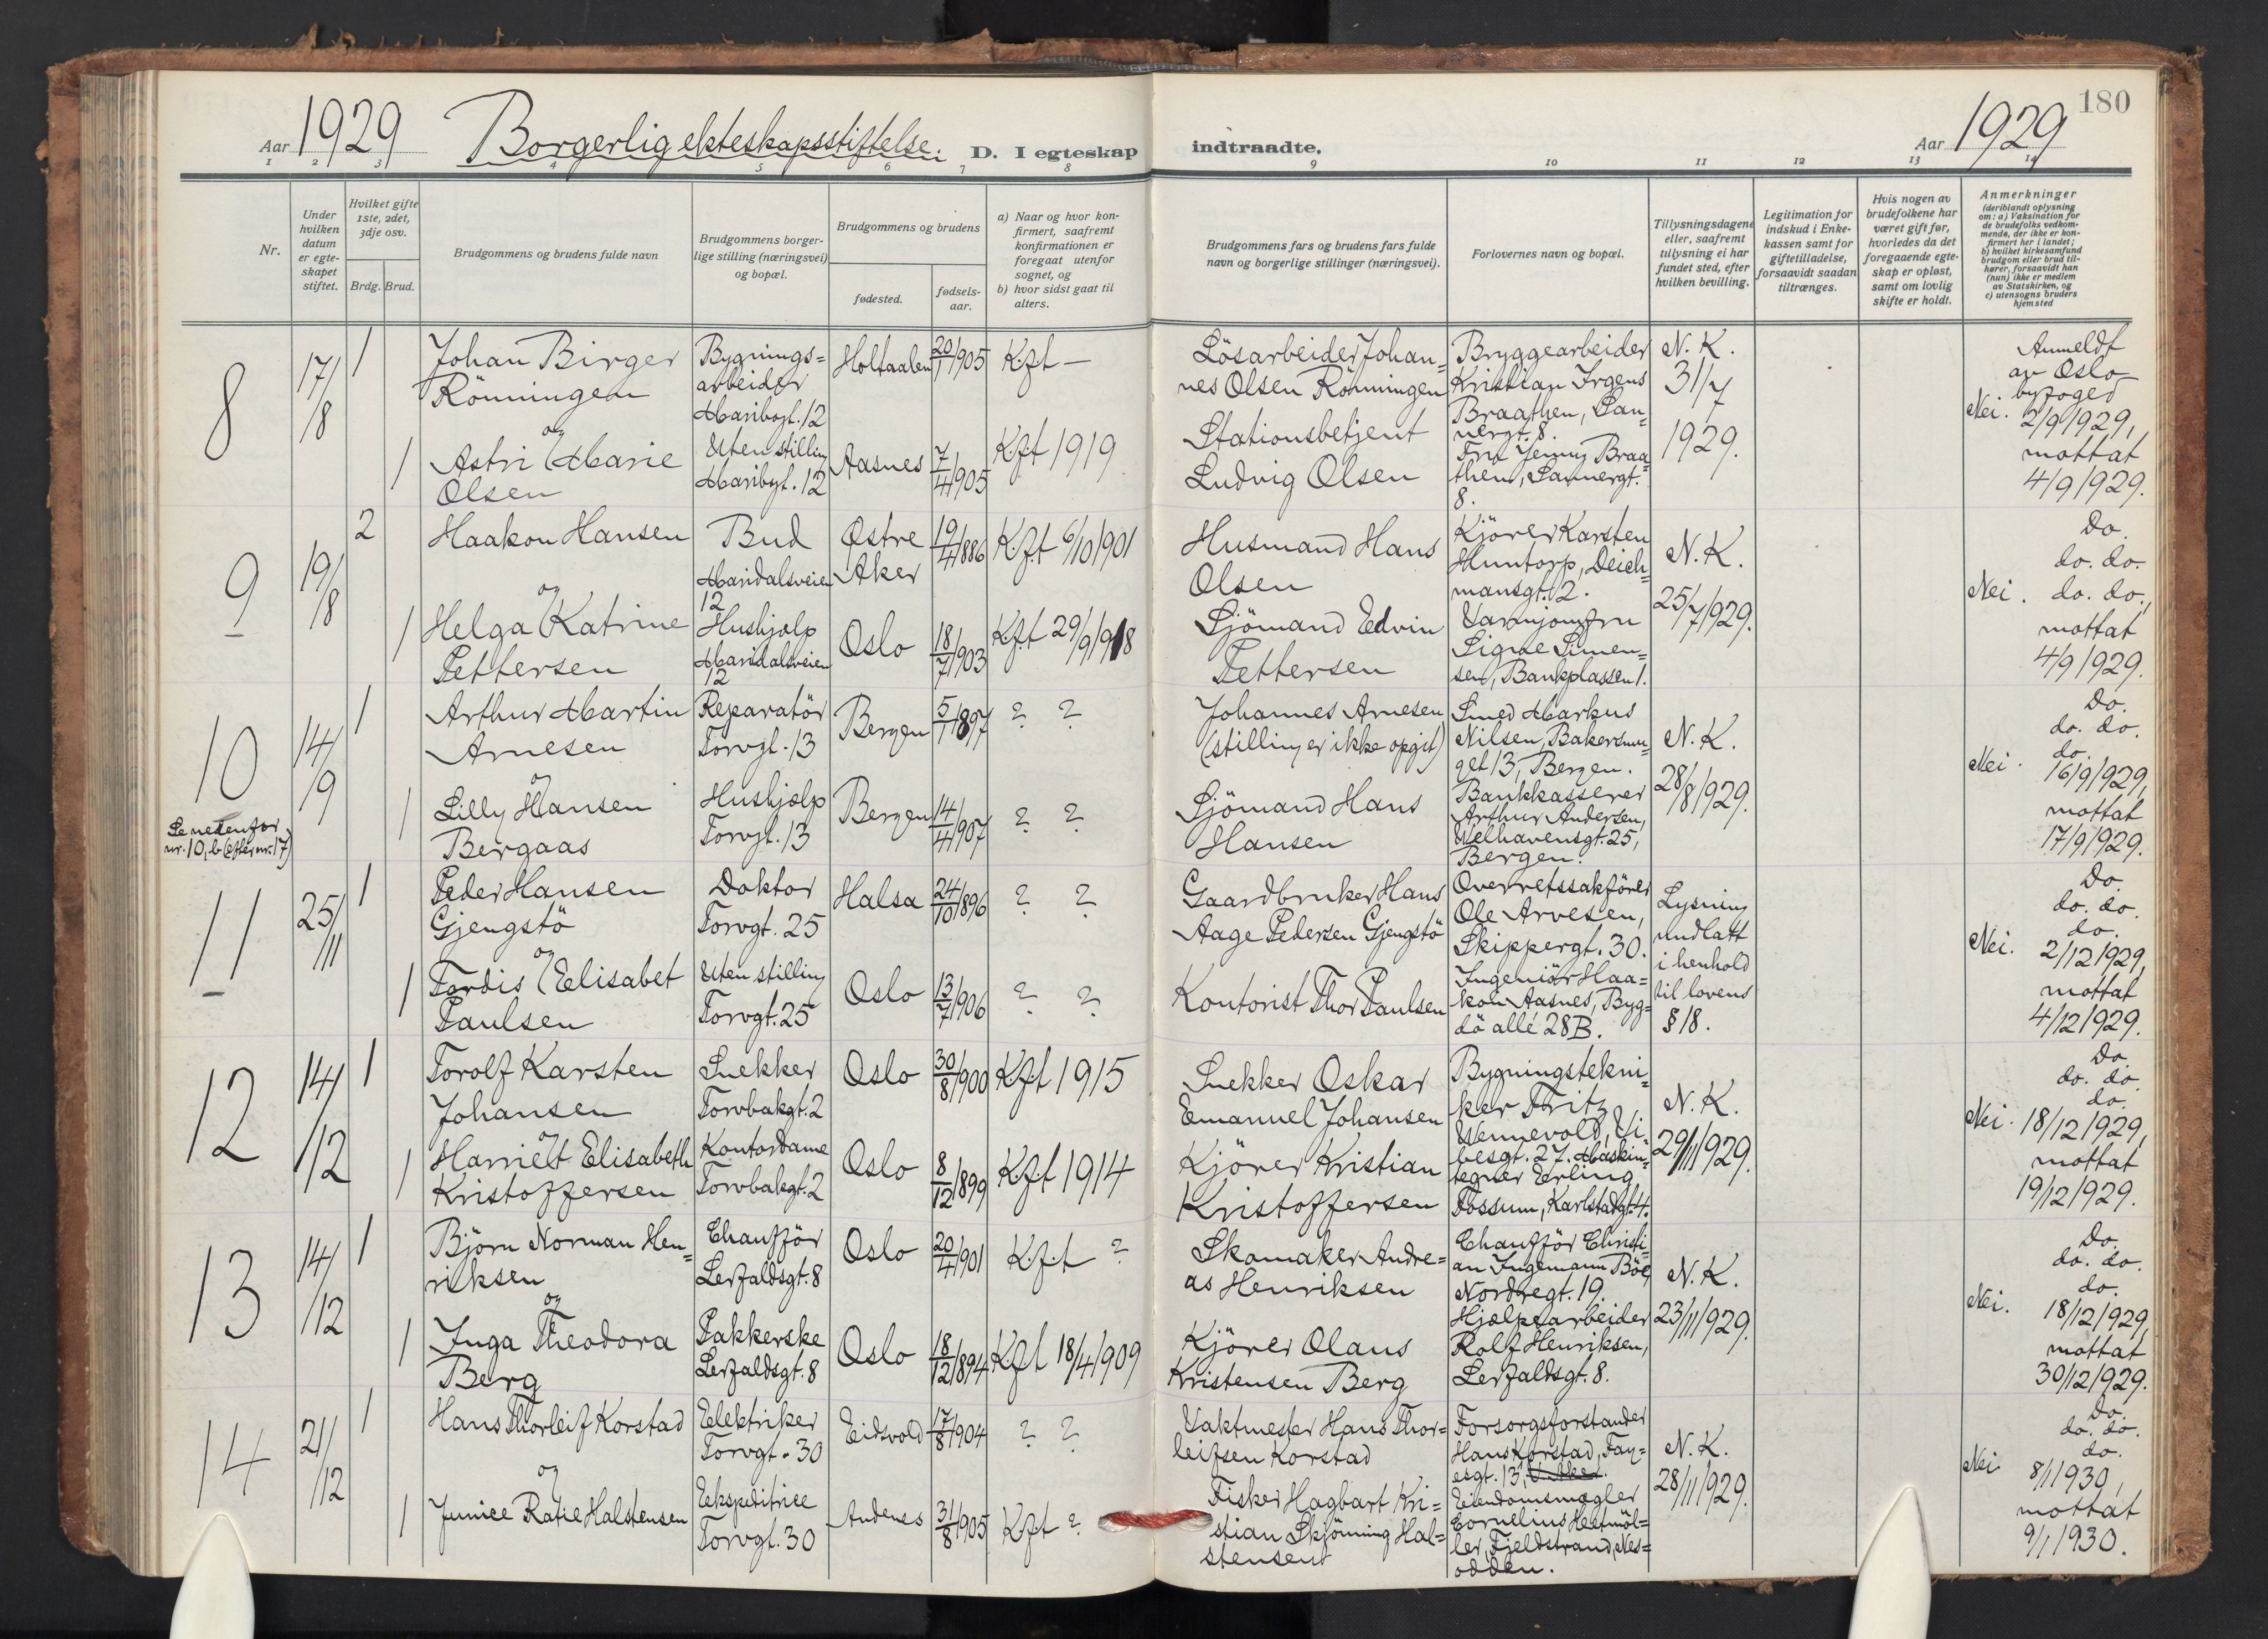 180
Aar 1929 Borgerlig ekteskapsstiftelse. D. I egteskap indtraadte. Aar 1929
1 2 3 4 5 6 7 8 9 10 11 12 13 14
Nr.
Under
hvilken
datum
er egte-
skapet
stiftet.
Hvilket gifte
1ste, 2det,
3dje osv.
Brdg. Brud.
Brudgommens og brudens fulde navn
Brudgommens borger-
lige stilling (næringsvei)
og bopæl.
Brudgommens og brudens
fødested.
fødsels-
aar.
a) Naar og hvor kon-
firmert, saafremt
konfirmationen er
foregaat utenfor
sognet, og
b) hvor sidst gaat til
alters.
Brudgommens fars og brudens fars fulde
navn og borgerlige stillinger (næringsvei).
Forlovernes navn og bopæl.
Tillysningsdagene
eller, saafremt
tillysning ei har
fundet sted, efter
hvilken bevilling.
Legitimation for
indskud i Enke-
kassen samt for
giftetilladelse,
forsaavidt saadan
tiltrænges.
Hvis nogen av
brudefolkene har
været gift før,
hvorledes da det
foregaaende egte-
skap er opløst,
samt om lovlig
skifte er holdt.
Anmerkninger
(deriblandt oplysning
om: a) Vaksination for
de brudefolks vedkom-
mende, der ikke er kon-
firmert her i landet;
b) hvilket kirkesamfund
brudgom eller brud til-
hører, forsaavidt han
(hun) ikke er medlem
av Statskirken, og
c) utensogns bruders
hjemsted
8
17/
/8
1
Johan Birger
Rönningen
og
1
Astri Marie
Olsen
Bygnings=
arbeider
Maribogt. 12
Uten stilling
Maribogt. 12
Holtaalen
20/1 1905
Kft —
Aasnes
7/4 1905
Kft 1919
Lösarbeider Johan=
nes Olsen Rönningen
Stationsbetjent
Ludvig Olsen
Bryggearbeider
Kristian Irgens
Braathen, San=
nergt. 8.
Fru Jenny Braa=
then, Sannergt.
8.
N. K.
31/7
1929.
Anmeldt
av Oslo
byfoged
Nei. 2/9 1929,
mottat
4/9 1929.
9
19/
/8
2
Haakon Hansen
og
1
Helga Katrine
Pettersen
Bud
Maridalsveien
12
Hushjælp
Maridalsveien
12
Østre
Aker
19/4 1886
Kft 6/10 1901
Oslo
18/7 1903
Kft 29/9 1918
Husmand Hans
Olsen
Sjömand Edvin
Pettersen
Kjörer Karsten
Huntorp, Deich=
mansgt. 12.
Varmjomfru
Signe Simen=
sen, Bankplassen 1.
N. K.
25/7 1929.
Do.
do. do.
Nei. do. do.,
mottat
4/9 1929.
10
Se nedenfor
nr. 10, b (efter nr. 17)
14/
/9
1
Arthur Martin
Arnesen
og
1
Lilly Hansen
Bergaas
Reparatör
Torvgt. 13
Hushjælp
Torvgt. 13
Bergen
5/1 1897
? ?
Bergen
14/4 1907
? ?
Johannes Arnesen
(stilling er ikke opgit)
Sjömand Hans
Hansen
Smed Markus
Nilsen, Bakersmu=
get 13, Bergen.
Bankkasserer
Arthur Andersen,
Welhavensgt. 25,
Bergen.
N. K.
28/8 1929.
Do.
do. do.
do.
Nei. 16/9 1929,
mottat
17/9 1929.
11
25/
/11
1
Peder Hansen
Gjengstö
og
1
Tordis Elisabet
Paulsen
Doktor
Torvgt. 25
Uten stilling
Torvgt. 25
Halsa
24/10 1896
? ?
Oslo
13/7 1906
? ?
Gaardbruker Hans
Aage Pedersen Gjengstö
Kontorist Thor Paulsen
Overretssakförer
Ole Arvesen,
Skippergt. 30.
Ingeniör Haa=
kon Aasnes, Byg=
dö allé 28B.
Lysning
undlatt
i henhold
til lovens
§ 18.
Do.
do. do.
do.
Nei. 2/12 1929,
mottat
4/12 1929.
12
14/
/12
1
Torolf Karsten
Johansen
og
1
Harriet Elisabeth
Kristoffersen
Snekker
Torvbakgt. 2
Kontordame
Torvbakgt. 2
Oslo
30/8 1900
Kft 1915
Oslo
8/12 1899
Kft 1914
Snekker Oskar
Emanuel Johansen
Kjörer Kristian
Kristoffersen
Bygningstekni=
ker Fritz
Wennevold, Vi=
besgt. 27. Maskin=
tegner Erling
Fossum, Karlstadgt. 4.
N. K.
29/11 1929.
Do.
do. do.
do.
Nei. 18/12 1929,
mottat
19/12 1929.
13
14/
/12
1
Björn Norman Hen=
riksen
og
1
Inga Theodora
Berg
Chaufför
Lerfaldsgt. 8
Pakkerske
Lerfaldsgt. 8
Oslo
20/4 1901
Kft ?
Oslo
18/12 1894
Kft 18/4 1909
Skomaker Andre=
as Henriksen
Kjörer Olaus
Kristensen Berg
Chaufför Christi=
an Ingemann Böe,
Nordregt. 19.
Hjælpearbeider
Rolf Henriksen,
Lerfaldsgt. 8.
N. K.
23/11 1929.
Do.
do. do.
do.
Nei. 18/12 1929,
mottat
30/12 1929.
14
21/
/12
1
Hans Thorleif Korstad
og
1
Junice Halstensen
Elektriker
Torvgt. 30
Ekspeditrice
Torvgt. 30
Eidsvold
17/8 1904
? ?
Andenes
31/8 1905
Kft ?
Vaktmester Hans Thor=
leifsen Korstad
Fisker Hagbart Kri=
stian Skjönning Hal=
stensen
Forsorgsforstander
Hans Korstad, Fay=
esgt. 13,
Eiendomsmægler
Cornelius
Fjeldstrand, Nes=
odden.
N. K.
28/11 1929.
Do.
do. do.
do.
Nei 8/1 1930,
mottat
9/1 1930.